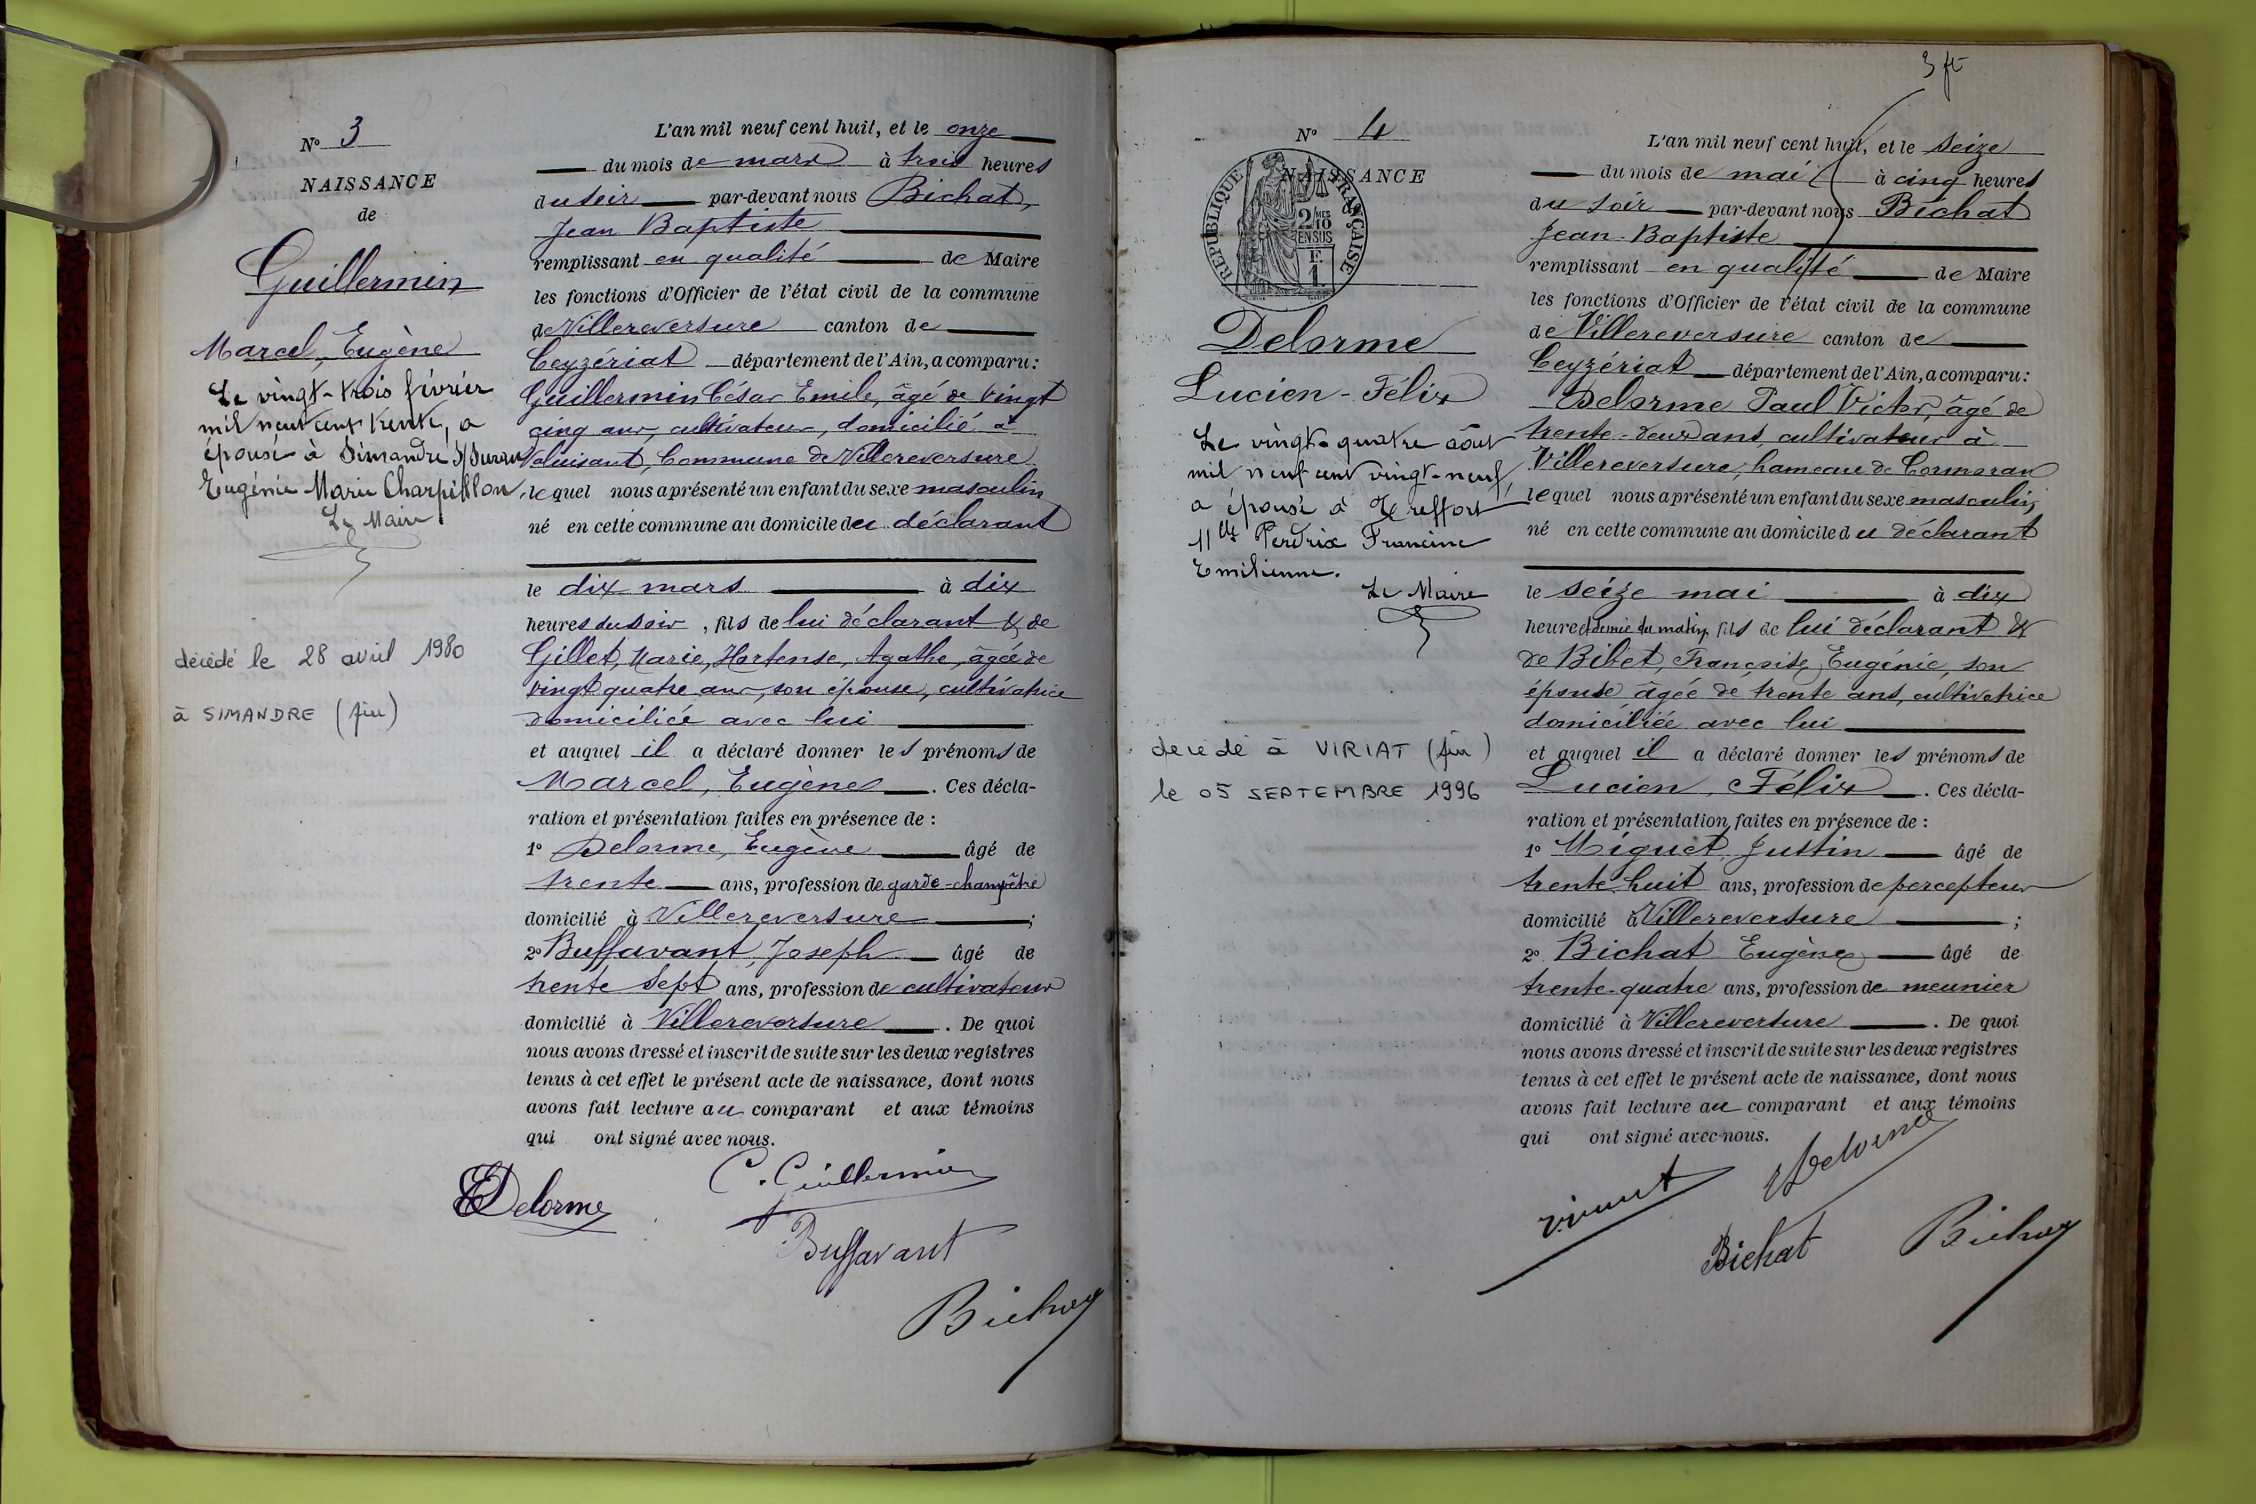 N° 3
NAISSANCE
de
Guillermin
Marcel, Eugène
Le vingt-trois février
mil neuf cent trente, a
épousé à Simandre s/Suran
Eugénie Marie Charpillon,
Le Maire
décédé le 28 avril 1980
à SIMANDRE (Ain)
L'an mil neuf cent huit, et le onze
du mois de mars à trois heures
du soir par-devant nous Bichat,
Jean Baptiste
remplissant en qualité de Maire
les fonctions d'Officier de l'état civil de la commune
de Villereversure canton de
Ceyzériat département de l'Ain, a comparu :
Guillermin César Emile, âgé de vingt
cinq ans, cultivateur, domicilié à
Noluisant, Commune de Villereversure
lequel nous a présenté un enfant du sexe masculin
né en cette commune au domicile du déclarant
le dix mars à dix
heures du soir, fils de lui déclarant & de
Gillet, Marie, Hortense, Agathe, âgée de
vingt quatre ans, son épouse, cultivatrice
domiciliée avec lui
et auquel il a déclaré donner les prénoms de
Marcel, Eugène. Ces décla-
ration et présentation faites en présence de :
1° Delorme, Eugène âgé de
trente ans, profession de garde-champêtre
domicilié à Villereversure ;
2° Buffavant, Joseph âgé de
trente sept ans, profession de cultivateur
domicilié à Villereversure. De quoi
nous avons dressé et inscrit de suite sur les deux registres
tenus à cet effet le présent acte de naissance, dont nous
avons fait lecture au comparant et aux témoins
qui ont signé avec nous.
C. Guillermin
E Delorme
Buffavant
Bichat
3 ft
N° 4
NAISSANCE
de
RÉPUBLIQUE FRANÇAISE
2 MES
10
EN SUS
F.
1.
Delorme
Lucien-Félix
Le vingt-quatre août
mil neuf cent vingt-neuf,
a épousé à Treffort
Mlle Perdrix Francine
Emilienne.
Le Maire
decédé à VIRIAT (Ain)
le 05 SEPTEMBRE 1996
L'an mil neuf cent huit, et le seize
du mois de mai à cinq heures
du soir par-devant nous Bichat
Jean-Baptiste
remplissant en qualité de Maire
les fonctions d'Officier de l'état civil de la commune
de Villereversure canton de
Ceyzériat département de l'Ain, a comparu :
Delorme Paul Victor, âgé de
trente-deux ans, cultivateur à
Villereversure, hameau de Cormoran
lequel nous a présenté un enfant du sexe masculin,
né en cette commune au domicile du déclarant
le seize mai à dix
heures et demie du matin, fils de lui déclarant &
de Bibet, Françoise, Eugénie, son
épouse âgée de trente ans, cultivatrice
domiciliée avec lui
et auquel il a déclaré donner les prénoms de
Lucien, Félix. Ces décla-
ration et présentation faites en présence de :
1° Miguet, Justin âgé de
trente huit ans, profession de percepteur
domicilié à Villereversure ;
2° Bichat Eugène âgé de
trente-quatre ans, profession de meunier
domicilié à Villereversure. De quoi
nous avons dressé et inscrit de suite sur les deux registres
tenus à cet effet le présent acte de naissance, dont nous
avons fait lecture au comparant et aux témoins
qui ont signé avec nous.
Delorme
Bichat
Bichat